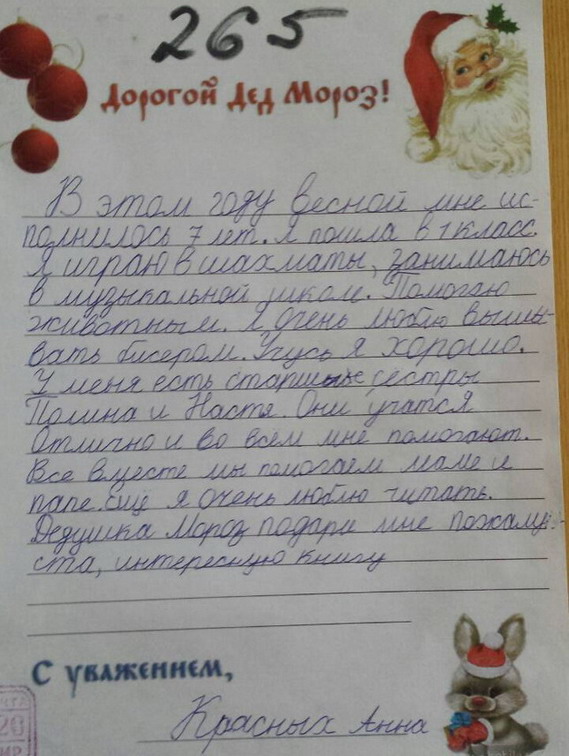 265
Дорогой Дед Мороз!
В этом году весной мне ис-
полнилось 7 лет. Я пошла в 1 класс.
Я играю в шахматы, занимаюсь
в музыкальной школ. Помогаю
животным. Я очень люблю выши-
вать бисером. Учусь я хорошо.
У меня есть старшые сёстры
Полина и Настя. Они учатся
Отлично и во всём мне помогают.
Все вместе мы помогаем маме и
папе. Ещё я очень люблю читать.
Дедушка Мороз подари мне пожалуй-
ста, интересную книгу
С уважением,
Красных Анна
20